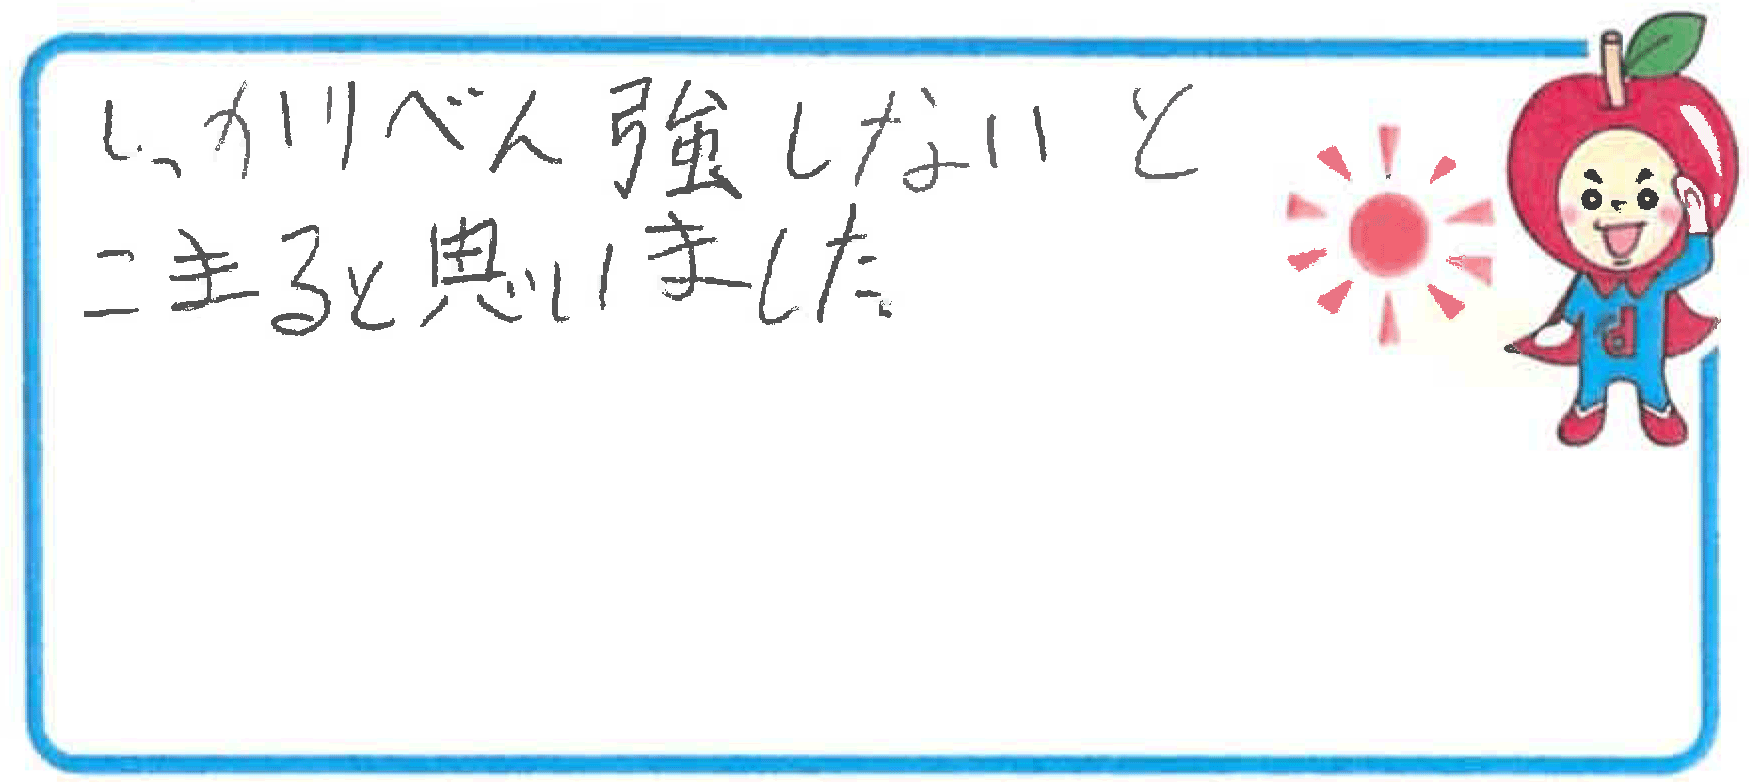 しっかりべん強しないと
こまると思いました